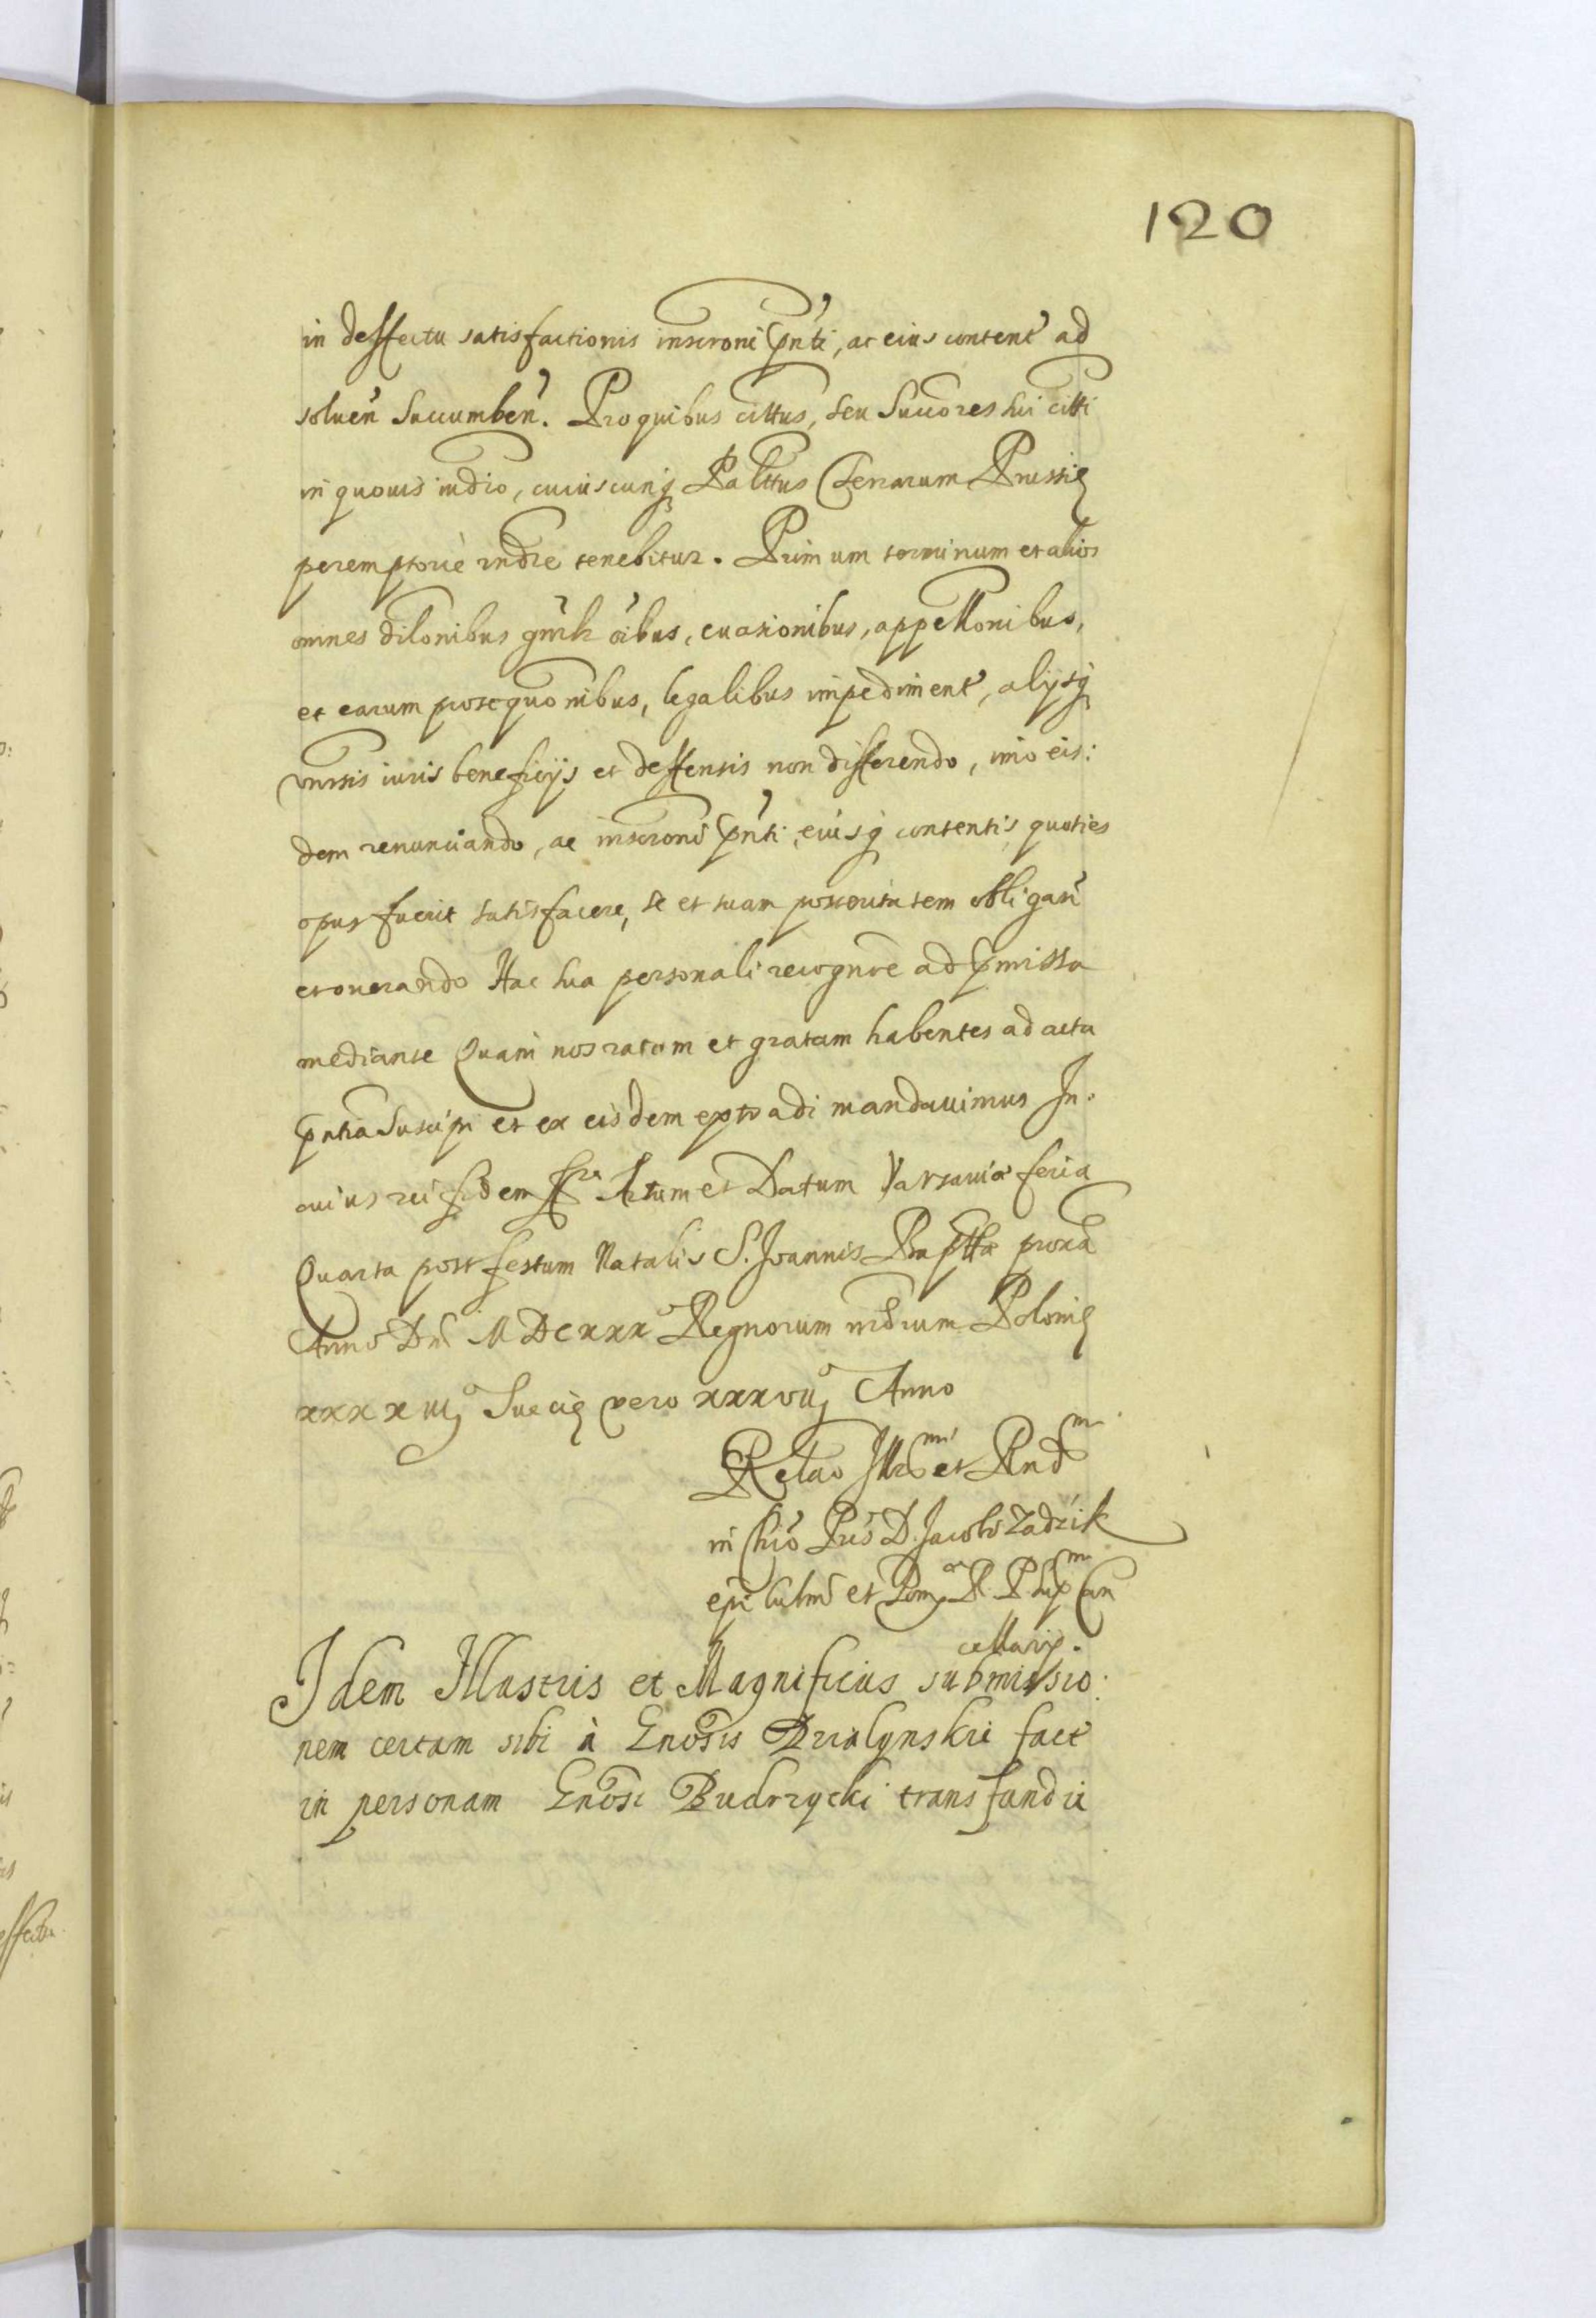 120
in deffectu satisfactionis inscroni pn̄ti, ac eius content̄ ad
soluen̄ succumben̄. Pro quibus cittus, seu succores sui citti
in quouis iudio, cuiuscunq̨ Palttus terrarum Prussię
peremptoriè rndre tenebitur. Primum terminum et alios
omnes dilonibus gn̄rlr oībus, euasionibus, appellonibus,
et earum prosequonibus, legalibus impediment̄, alijsq̨
vnirsis iuris beneficijs et deffensis non differendo, imo eis:
dem renunciando, ac inscroni pn̄ti, eiusq̨ contentis, quoties
opus fuerit satisfacere, se et suam posteritatem obligan̄
et onerando Hac sua personali recognore ad pmissa
mediante Quam nos ratam et gratam habentes ad acta
pntia suscipi et ex eisdem extradi mandauimus In.
cuius rei fidem Actum et Datum Varsauiæ feria
Quarta post festum Natalis S. Joannis Bapttæ proxa
Anno Dni MDCXXX Regnorum nrorum Polonię
xxxxiij Suecię vero xxxvij Anno
Relao Illrmi et Rndmi
in Chro Pris D. Jacobi Zadzik
epi Culmn et Pom, R. P. supmi Can
cellarij.
Idem Illustris et Magnificus submissio:
nem certam sibi à Gnosis Dzialynskie fact̄
in personam Gnosi Budzzycki transfundit